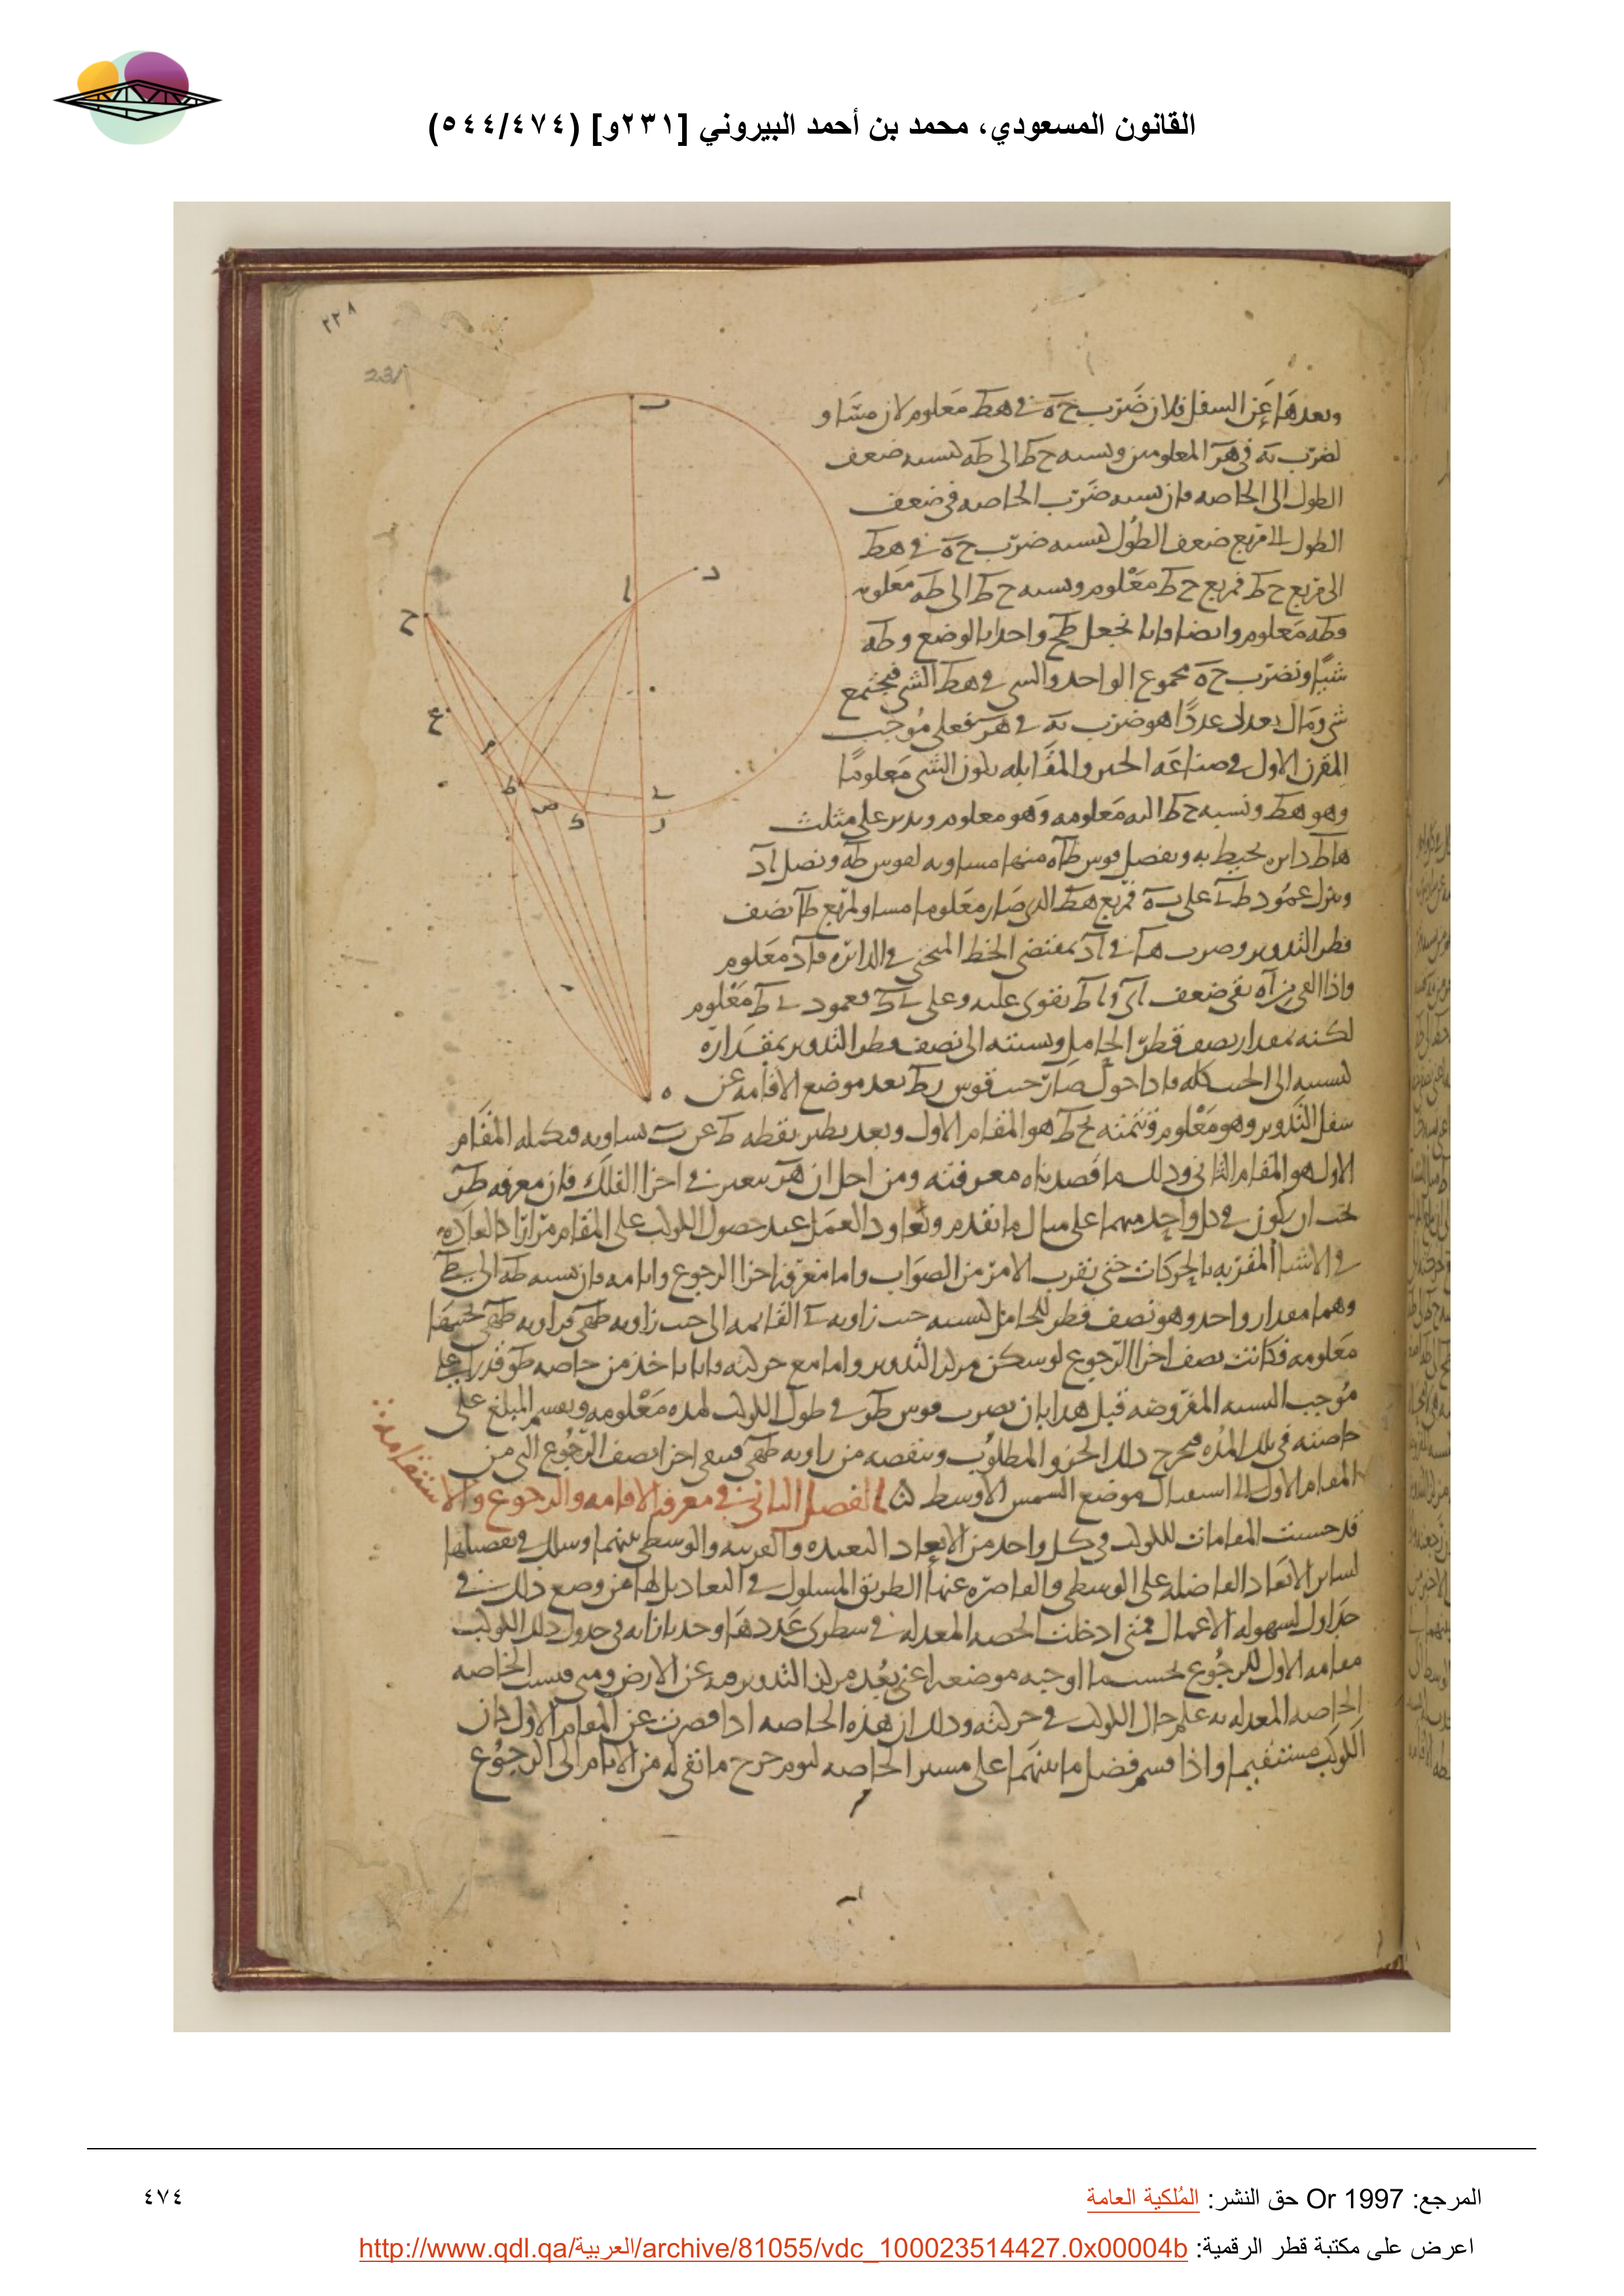 القانون المسعودي، محمد بن أحمد البيروني [٢٣١و] (٥٤٤/٤٧٤)
٢٢٨
231
وبعدها عن السفل فلان ضرب ح ه في هط معلوم لان مساو
لضرب به في هر المعلومين ونسبه ح ط الى طه كنسبه ضعف
الطول الى الخاصه فان نسبه ضرب الخاصه في ضعف
الطول الى مربع ضعف الطول كنسبه ضرب ح ه في هط
الى مربع ح ط فمربع ح ط معلوم ونسبه ح ط الى طه معلومه
فطه معلوم وايضا فانا نجعل طح واحدا بالوضع وطه
شيا ونضرب ح ه مجموع الواحد والشي في هط الشي فيجتمع
شي ومال يعدل عددا هو ضرب به في هر نفعل موجب
المقترن الاول في صناعه الجبر والمقابله يكون الشي معلوما
وهو هط ونسبه ح ط اليه معلومه وهو معلوم وندير على مثلث
هاط دايره تحيط به ونفصل قوس طاه منها مساويه لقوس طه ونصل اد
وننزل عمود طى على به فمربع هط الذي صار معلوما مساو لمربع طا نصف
قطر التدوير وضرب ها في اد بمقتضى الخط المنحني في الدائره فاد معلوم
واذا القي من اه بقي ضعف اى و اط يقوى عليه وعلى ى ط فعمود ى ط معلوم
لكنه بمقدار نصف قطر الحامل ونسبته الى نصف قطر التدوير بمقداره
كنسبته الى الجيب كله فاذا حول صار جيب قوس رط بعد موضع الاقامه عن
سفل التدوير وهو معلوم وتتمته بح ط هو المقام الاول وبعد نظير نقطه ط عن ب يساويه وتكمله المقام
الاول هو المقام الثاني وذلك ما قصدناه معرفته ومن اجل ان هر يتغير في اجزا الفلك فان معرفه طر
يجب ان يكون في كل واحد منهما على مثال ما تقدم ونعاود العمل عند حصول الكوكب على المقام مرارا كالعاده
في الاشيا المقتربه بالحركات حتى يقرب الامر من الصواب واما معرفه اجزا الرجوع وايامه فان نسبه طه الى طى
وهما بمقدار واحد وهو نصف قطر الحامل كنسبه جيب زاويه ى القائمه الى جيب زاويه طهى فزاويه طهى بحسبها
معلومه فكانت نصف اجزا الرجوع لو سكن مركز التدوير واما مع حركته فانا ناخذ من خاصه طو قدرا على
موجب النسبه المفروضه قبل هذا بان نضرب قوس طو في طول الكوكب لمده معلومه ونقسم المبلغ على
خاصته في تلك المده فيخرج ذلك الجزو المطلوب وننقصه من زاويه طهى فيبقى اجزا نصف الرجوع التي من
المقام الاول الى استقبال موضع الشمس الاوسط الفصل الثاني في معرفه الاقامه والرجوع والاستقامه
قد حسبت المقامات للكوكب في كل واحد من الابعاد البعيده والقريبه والوسطى بينهما وسلك في تفصيلها
لسائر الابعاد الفاضله على الوسطى والقاصره عنها الطريق المسلوك في التعاديل لها من وضع ذلك في
جداول لسهوله الاعمال فمتى ادخلت الحصه المعدله في سطرى عددها وجد بازائه في جدول ذلك الكوكب
مقامه الاول للرجوع بحسب ما اوجبه موضعه اعني بعد مركز التدوير فيه عن الارض ومتى قيست الخاصه
الخاصه المعدله به علم حال الكوكب في حركته وذلك ان هذه الخاصه اذا قصرت عن المقام الاول كان
الكوكب مستقيما واذا قسم فضل ما بينهما على مسير الخاصه ليوم خرج ما بقي له من الايام الى الرجوع
المرجع: Or 1997 حق النشر: المُلكية العامة
٤٧٤
اعرض على مكتبة قطر الرقمية: http://www.qdl.qa/العربية/archive/81055/vdc_100023514427.0x00004b